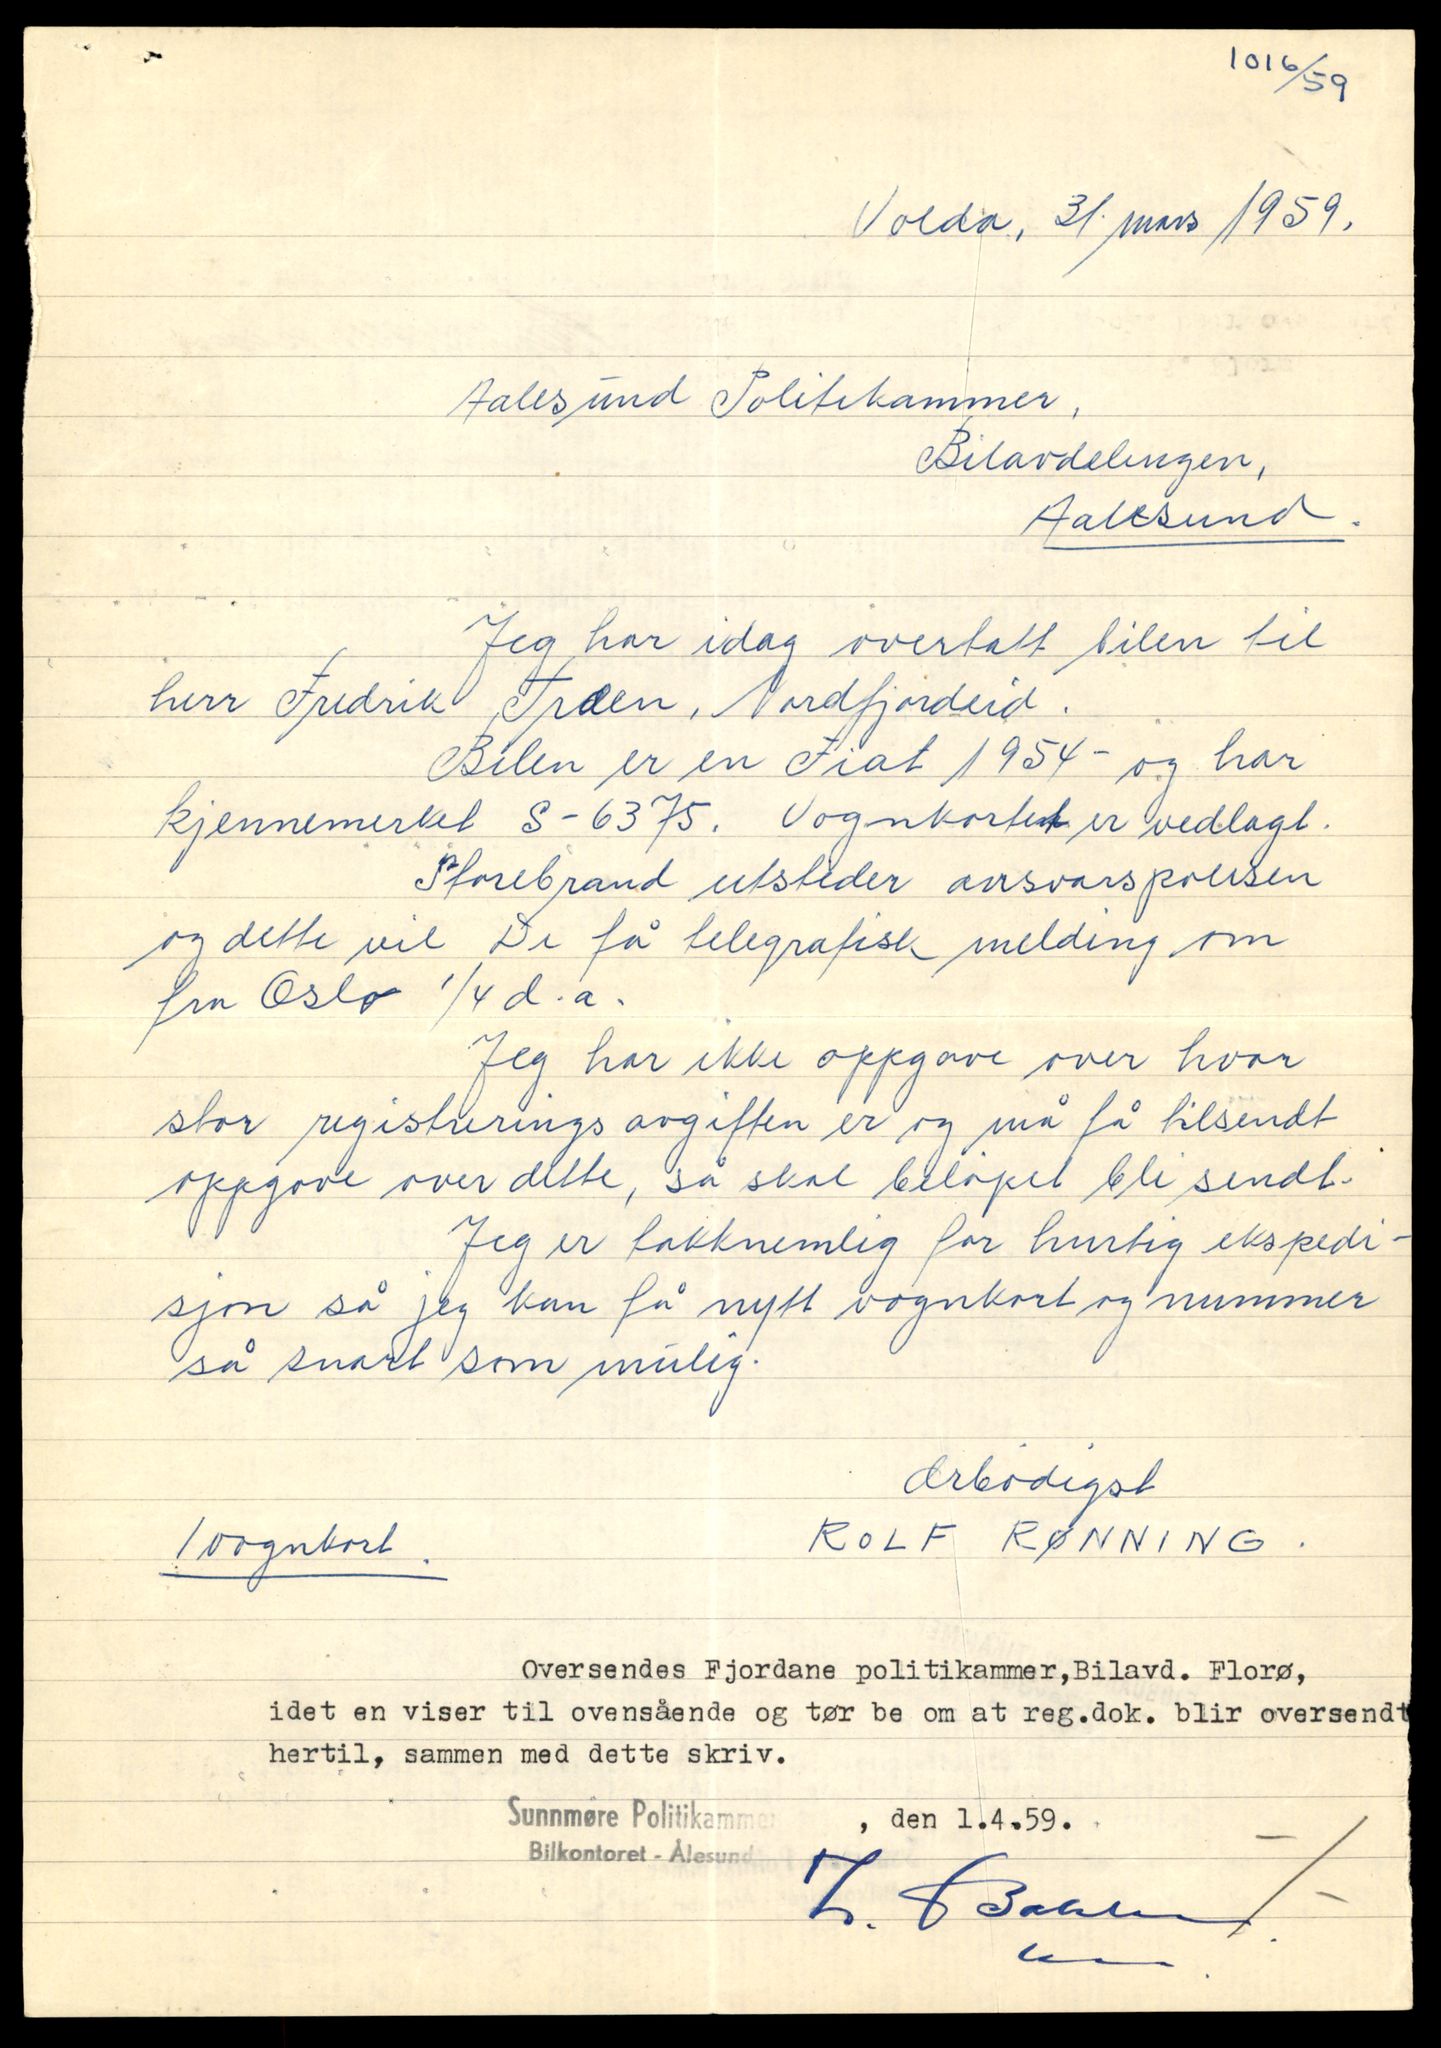 1016/59
Volda, 31. mars 1959.
Aalesund Politikammer,
Bilavdelingen,
Aalesund.
Jeg har idag overtatt bilen til
herr Fredrik Træen, Nordfjordeid.
Bilen er en Fiat 1954 - og har
kjennemerket S-6375. Vognkortet er vedlagt.
Storebrand utsteder ansvarspolisen
og dette vil De få telegrafisk melding om
fra Oslo 1/4 d.a.
Jeg har ikke oppgave over hvor
stor registreringsavgiften er og må få tilsendt
oppgave over dette, så skal beløpet bli sendt.
Jeg er takknemlig for hurtig ekspedi-
sjon så jeg kan få nytt vognkort og nummer
så snart som mulig.
Ærbødigst
1 vognkort.
ROLF RØNNING.
Oversendes Fjordane politikammer,Bilavd. Florø,
idet en viser til ovensående og tør be om at reg.dok. blir oversendt
hertil, sammen med dette skriv.
Sunnmøre Politikammer, den 1.4.59.
Bilkontoret - Ålesund